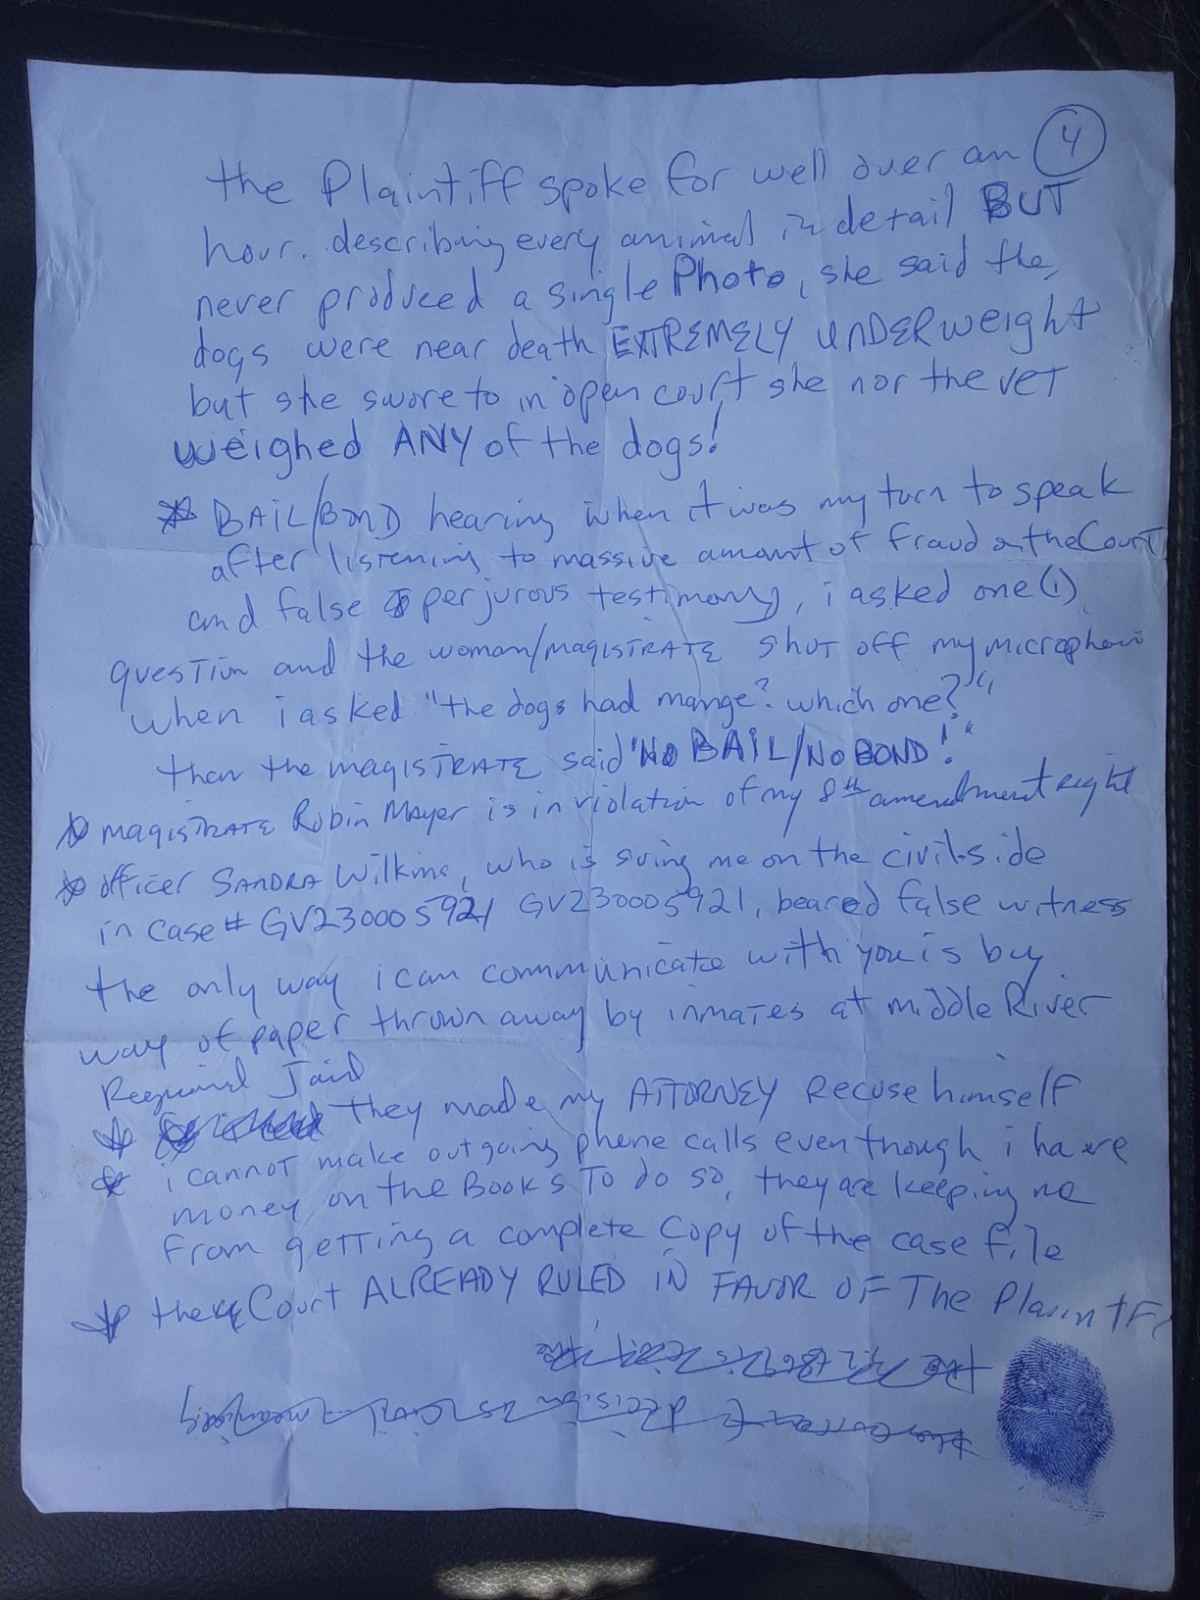 4
the Plaintiff spoke for well over an
hour. describing every animal in detail BUT
never produced a single Photo, she said the
dogs were near death EXTREMELY UNDERweight
but she swore to in open court she nor the vet
weighed ANY of the dogs!
BAIL/BOND hearing when it was my turn to speak
after listening to massive amount of fraud on the Court
and false perjurous testimony, i asked one (1)
question and the woman/magistrate shut off my microphone
when i asked "the dogs had mange? which one?"
then the magistrate said "NO BAIL/NO BOND!"
magistrate Robin Mayer is in violation of my 8th amendment right
officer SANDRA Wilkins, who is suing me on the civil side
in case # GV230005921 GV230005921, beared false witness
the only way i can communicate with you is buy
way of paper thrown away by inmates at middle River
Regional Jail
they made my ATTORNEY recuse himself
i cannot make outgoing phone calls even though i have
money on the Books To do so, they are keeping me
from getting a complete copy of the case file
the Court ALREADY RULED IN FAVOR OF The Plaintff